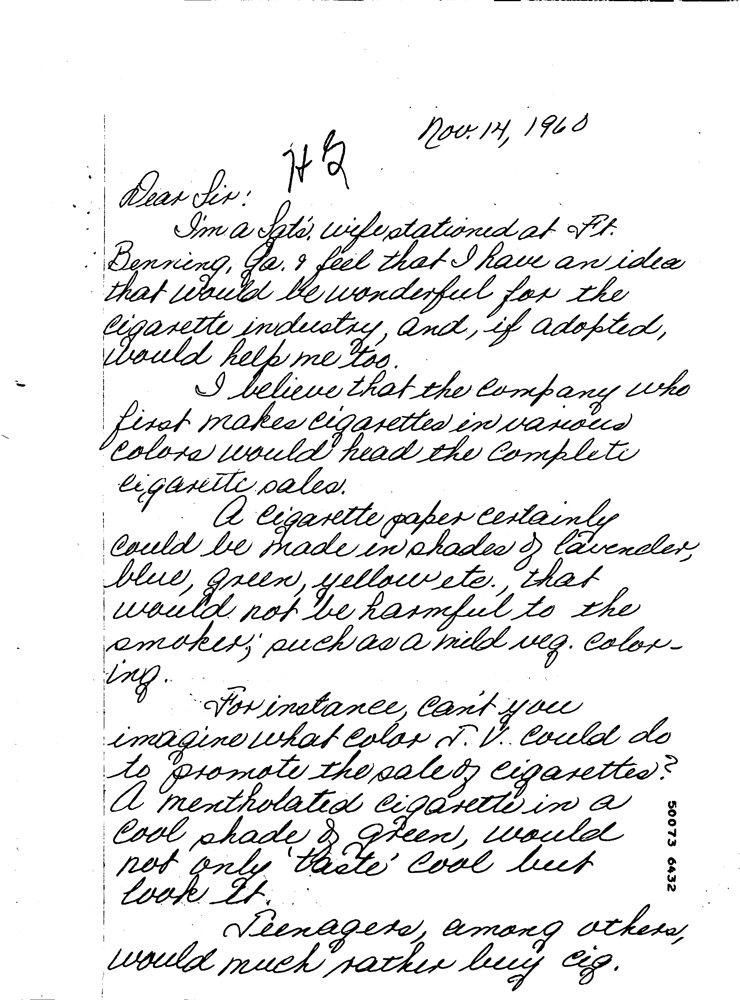 Nov. 14, 1960
Dear Sir:
I'm a Sgt's. wife stationed at Ft.
Benning, Ga. & feel that I have an idea
that would be wonderful for the
cigarette industry, and, if adopted,
would help me too.
I believe that the company who
first makes cigarettes in various
colors would head the complete
cigarette sales.
A cigarette paper certainly
could be made in shades of lavender,
blue, green, yellow etc., that
would not be harmful to the
smoker; such as a mild veg. color-
ing.
For instance, can't you
imagine what color T.V. could do
to promote the sale of cigarettes?
A mentholated cigarette in a
cool shade of green, would
not only 'taste' cool but
look it.
Teenagers, among others,
would much rather buy cig.
50073 6432